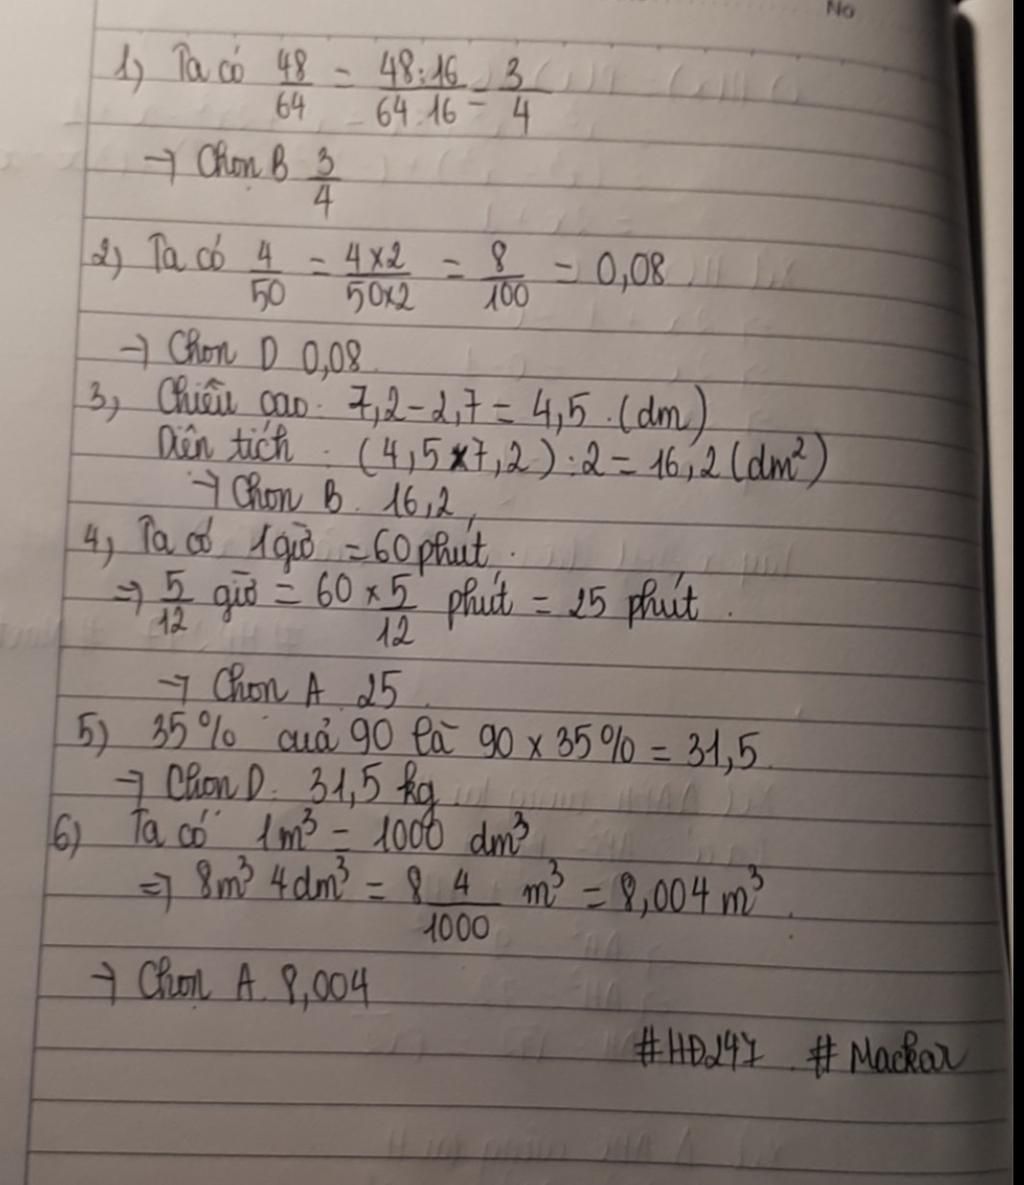 No
1) Ta có 48/64 = 48:16/64:16 = 3/4
→ Chọn B 3/4
2) Ta có 4/50 = 4x2/50x2 = 8/100 = 0,08
→ Chọn D 0,08
3) Chiều cao: 7,2-2,7 = 4,5 (dm)
Diện tích : (4,5x7,2):2=16,2(dm²)
→ Chọn B. 16,2
4) Ta có 1giờ =60phút.
=> 5/12 giờ = 60 x 5/12 phút = 25 phút.
→ Chọn A 25
5) 35% cuả 90 là 90 x 35% = 31,5
→ Chọn D. 31,5 kg
6) Ta có 1m³ = 1000 dm³
=> 8m³ 4dm³ = 8 4/1000 m³ = 8,004 m³
→ Chọn A. 8,004
#HĐ247 # Mackar